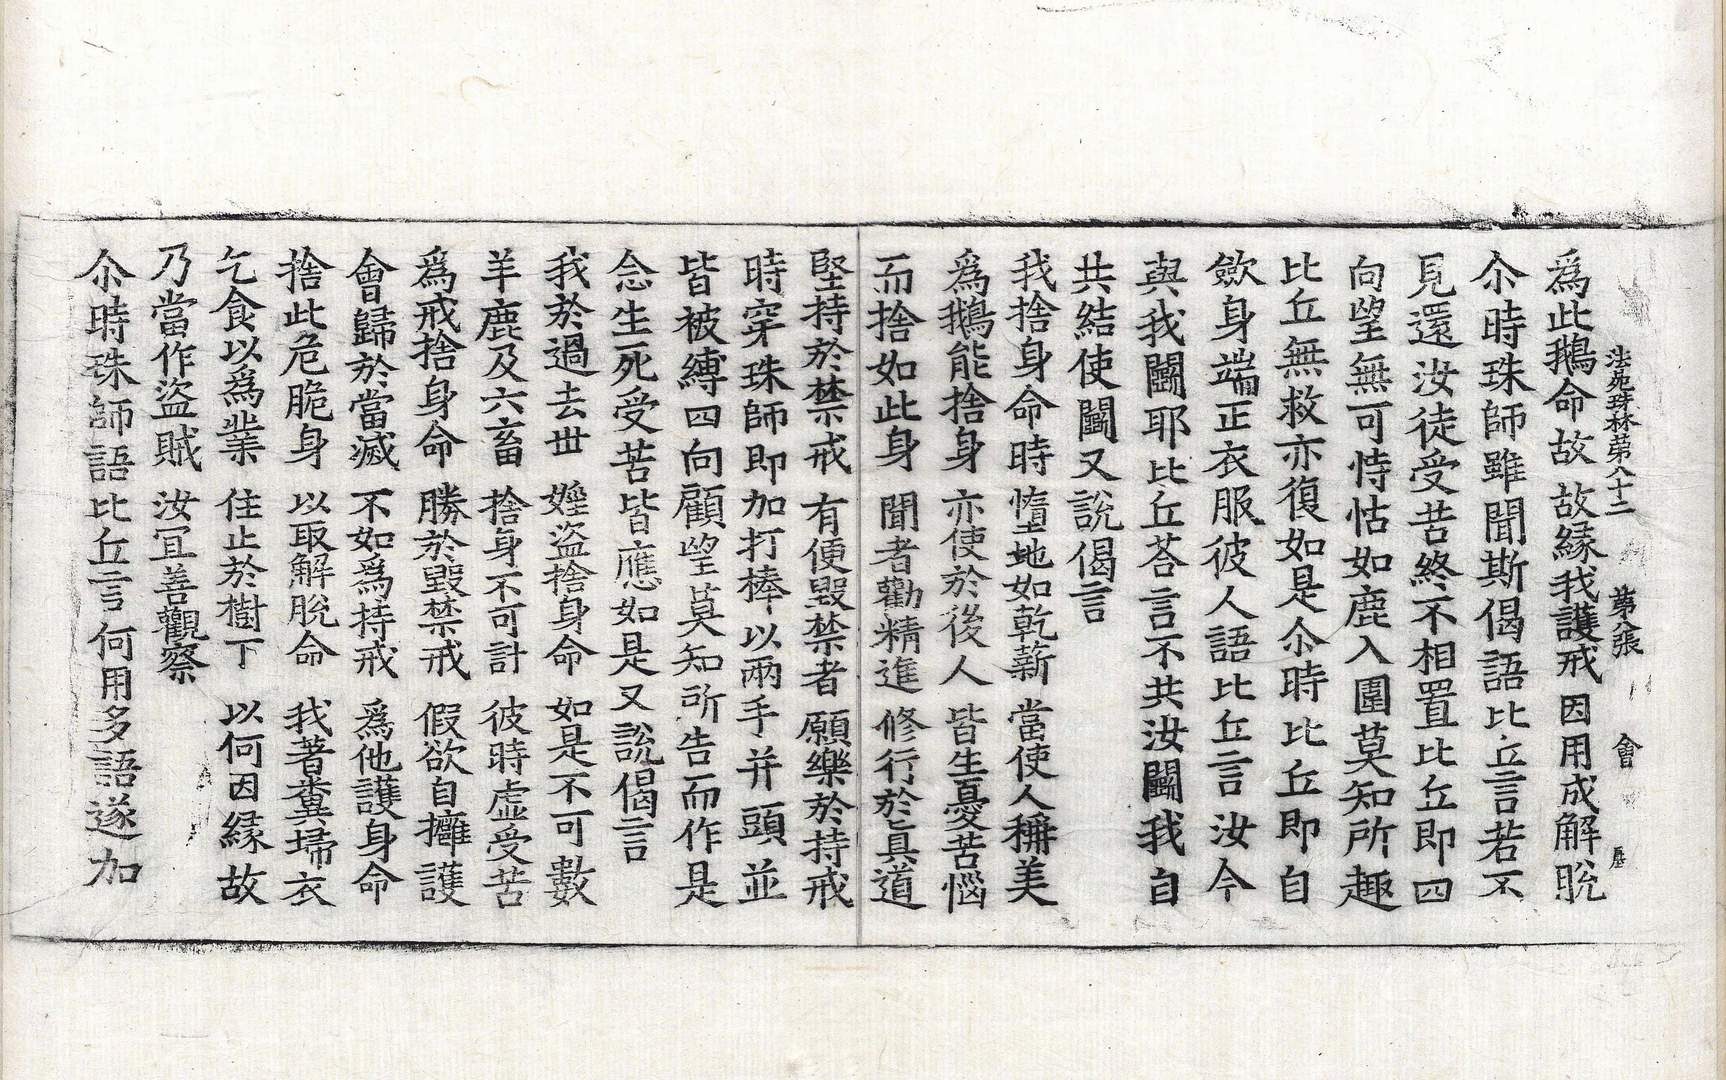 法苑珠林第八十二　第八張　會
爲此鵝命故　故緣我護戒　因用成解脫
尒時珠師雖聞斯偈語比丘言若不
見還汝徒受苦終不相置比丘即四
向望無可恃怙如鹿入圍莫知所趣
比丘無救亦復如是尒時比丘即自
斂身端正衣服彼人語比丘言汝今
與我鬪耶比丘荅言不共汝鬪我自
共結使鬪又說偈言
我捨身命時　墮地如乾薪　當使人稱美
爲鵝能捨身　亦使於後人　皆生憂苦惱
而捨如此身　聞者勸精進　修行於真道
堅持於禁戒　有使毀禁者　願樂於持戒
時穿珠師即加打棒以兩手并頭並
皆被縛四向顧望莫知所告而作是
念生死受苦皆應如是又說偈言
我於過去世　婬盜捨身命　如是不可數
羊鹿及六畜　捨身不可計　彼時虛受苦
爲戒捨身命　勝於毀禁戒　假欲自擁護
會歸於當滅　不如爲持戒　爲他護身命
捨此危脆身　以取解脫命　我著糞掃衣
乞食以爲業　住止於樹下　以何因緣故
乃當作盜賊　汝宜善觀察
尒時珠師語比丘言何用多語遂加